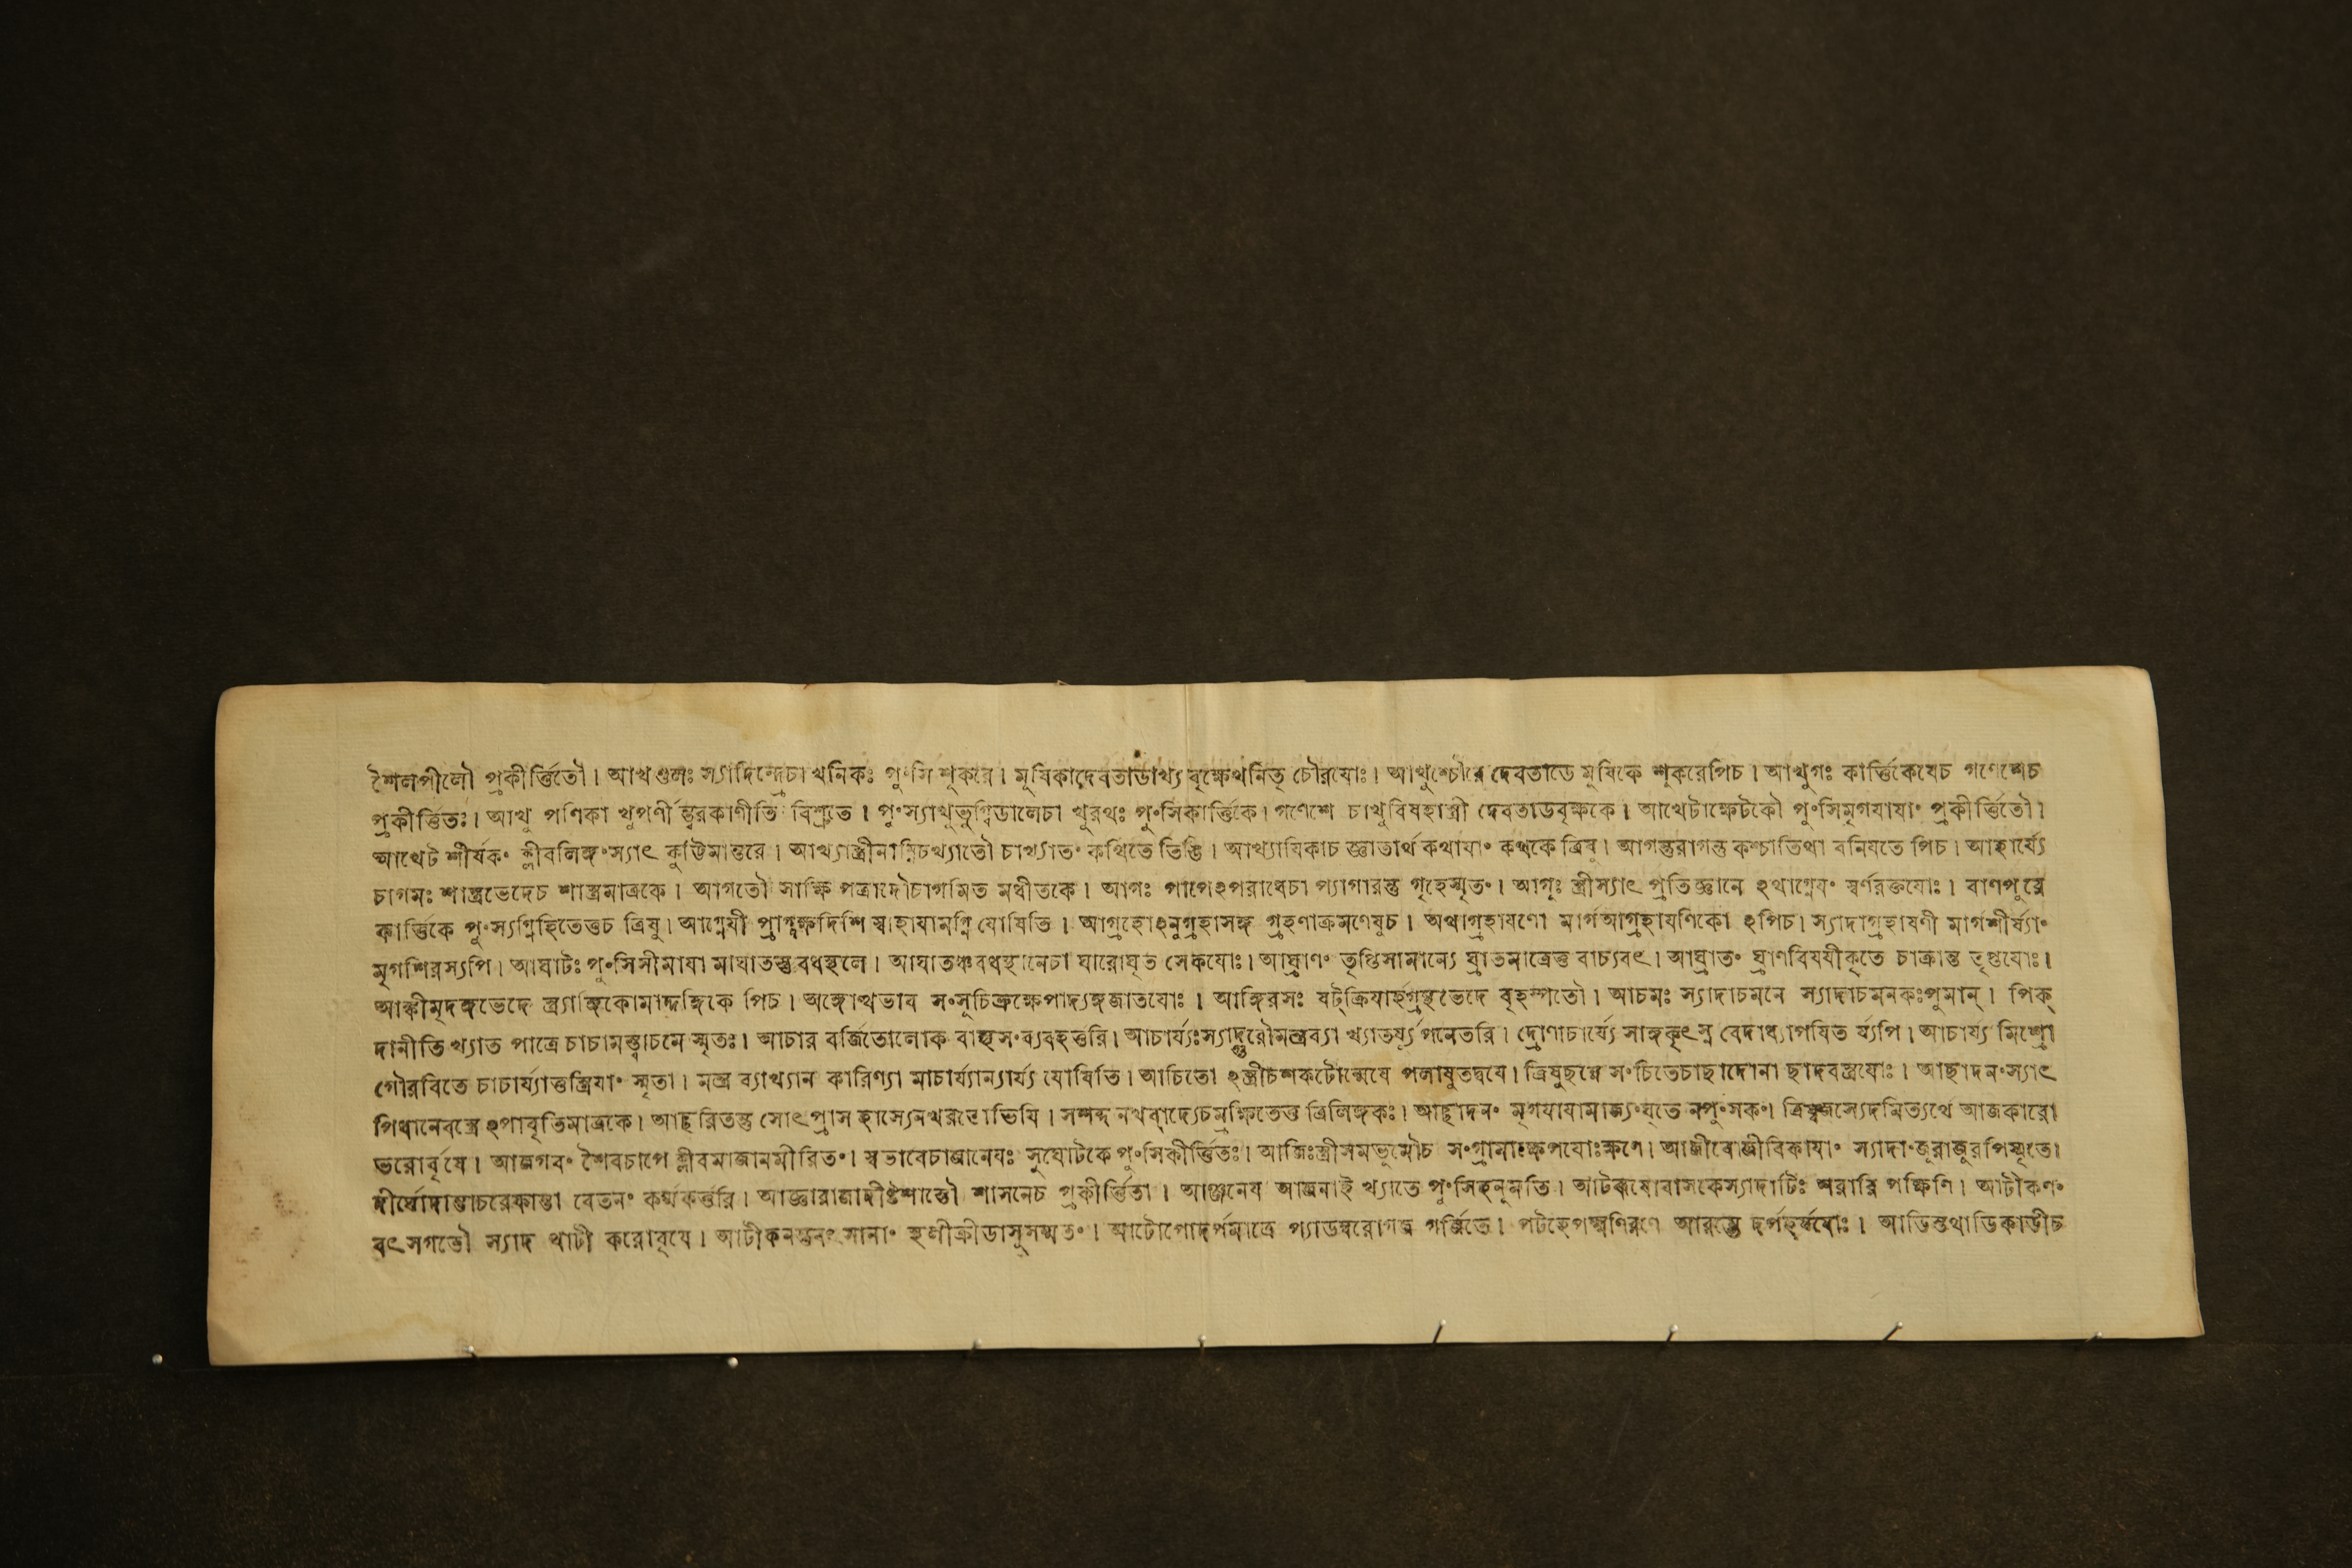 শৈলপীলৌ প্রকীর্ত্তিতৌ। আখণ্ডলঃ স্যাদিন্দ্রেচা খনিকঃ পু°সি শূকরে। মূষিকাদেবতাডাখ্য বৃক্ষেখনিতৃ চৌরযোঃ। আখুশ্চৌরে দেবতাডে মুষিকে শুকরেপিচ। আখুগঃ কার্ত্তিকেযেচ গণেশেচ
প্রকীর্ত্তিতঃ। আখু পণিকা খুপর্ণী বিশ্রুতে। পু°স্যাখুভুগ্বিডালেচা খুরথঃ পু°সিকার্ত্তিকে। গণেশে চাখুবিষহাস্ত্রী দেবতাডবৃক্ষকে। আখেটাক্ষেটকৌ পু°সিমৃগযাযা° প্রকীর্ত্তিতৌ।
আখেট শীর্ষক° ক্লীবলিঙ্গ°স্যাৎ কুট্টিমান্তরে। আখ্যাস্ত্রীনাম্নিচখ্যাতৌ চাখ্যাত° কথিতে তিঙি। আখ্যাযিকাচ জ্ঞাতার্থ কথাযা° কথকে ত্রিষু। আগন্তুরাগন্তু কশ্চাতিথা বনিযতে পিচ। আহার্য্যে
চাগমঃ শাস্ত্রভেদেচ শাস্ত্রমাত্রকে। আগতৌ সাক্ষি পত্রাদৌচাগমিত মধীতকে। আগঃ পাপেঽপরাধেচা প্যাগারন্তু গৃহেস্মৃত°। আগূঃ স্ত্রীস্যাৎ প্রতিজ্ঞানে ঽথাগ্নেয° স্বর্ণরক্তযোঃ। বাণপুরে
কার্ত্তিকে পু°স্যগ্নিহিতেত্তচ ত্রিষু। আগ্নেযী প্রাগ্দক্ষদিশি স্বাহাযামগ্নি যোষিতি। আগ্রহোঽনুগ্রহাসঙ্গ গ্রহণাক্রমণেষুচ। অথাগ্রহাযণো মার্গআগ্রহাযণিকো ঽপিচ। স্যাদাগ্রহাযণী মার্গশীর্ষ্যা°
মৃগশিরস্যপি। আঘাটঃ পু°সিসীমাযা মাঘাতস্তু বধস্থলে। আঘাতঞ্চবধস্থানেচা ঘারোঘৃত সেকযোঃ। আঘ্রাণ° তৃপ্তিসামান্যে ঘ্রাতমাত্রেত্ত বাচ্যবৎ। আঘ্রাত° ঘ্রাণবিষযীকৃতে চাক্রান্ত তৃপ্তযোঃ।
আঙ্কীমৃদঙ্গভেদে স্ত্র্যাঙ্গিকোমার্দ্দঙ্গিকে পিচ। অঙ্গোত্থভাব স°সুচিভ্রুক্ষেপাদ্যঙ্গজাতযোঃ। আঙ্গিরসঃ ষট্ক্রিযার্হগ্রন্থভেদে বৃহস্পতৌ। আচমঃ স্যাদাচমনে স্যাদাচমনকঃপুমান্। পিক্
দানীতি খ্যাত পাত্রে চাচামস্ত্বাচনে স্মৃতঃ। আচার বর্জিতোলোক বাহ্যস°ব্যবহর্ত্তরি। আচার্য্যঃস্যাদ্গুরৌমন্ত্রব্যা খ্যাতর্য্যুপনেতরি। দ্রোণাচার্য্যে সাঙ্গকৃৎস্ন বেদাধ্যাপযিত র্য্যপি। আচার্য্য মিশ্রো
গৌরবিতে চাচার্য্যাত্তস্ত্রিযা° স্মৃতা। মন্ত্র ব্যাখ্যান কারিণ্যা মাচার্য্যান্যার্য্য যোষিতি। আচিতো ঽস্ত্রীচশকটোন্মেযে পলাযুতদ্বযে। ত্রিষুছন্নে স°চিতেচাছাদোনা ছাদবস্ত্রযোঃ। আছাদন°স্যাৎ
পিধানেবস্ত্রে ঽপাবৃতিমাত্রকে। আছুরিতন্তু সোৎপ্রাস হাস্যেনখর ভিযি। নখবাদ্যেচ ত্রিলিঙ্গকঃ। আছাদন° মৃগযাযামাজ্য°ঘৃতে নপু°সক°। ত্রিষ্বজস্যেদমিত্যর্থে আজকারো
ভরোর্বৃষে। আজগব° শৈবচাপে ক্লীবমাজানমীরিত°। স্বভাবেচাজানেযঃ সুঘোটকে পু°সিকীর্ত্তিতঃ। আজিঃস্ত্রীসমভূমৌচ স°গ্রামাক্ষেপযোঃক্ষণে। আজীবোজীবিকাযা° স্যাদা°জূরাজুরপিস্মৃতে।
দীর্ঘোদান্তাচরেফান্তা বেতন° কর্ম্মকর্ত্তরি। আজ্ঞারাজাদীষ্টশাস্তৌ শাসনেচ প্রকীর্ত্তিতা। আঞ্জনেয আঞ্জনাই খ্যাতে পু°সিহনুমতি। আটরূষোবাসকেস্যাদাটিঃ শরারি পক্ষিণি। আটীকণ°
বৎসগতৌ স্যাদ থাটী করোবৃষে। হলীক্রীডাসুসম্মত°। আটোপোদর্পমাত্রে প্যাডম্বরোগজ গর্জ্জিতে। পটহেপক্ষ্মণিরণে আরম্ভে দর্পহর্ষযোঃ। আডিস্তথাডিকাডীচ